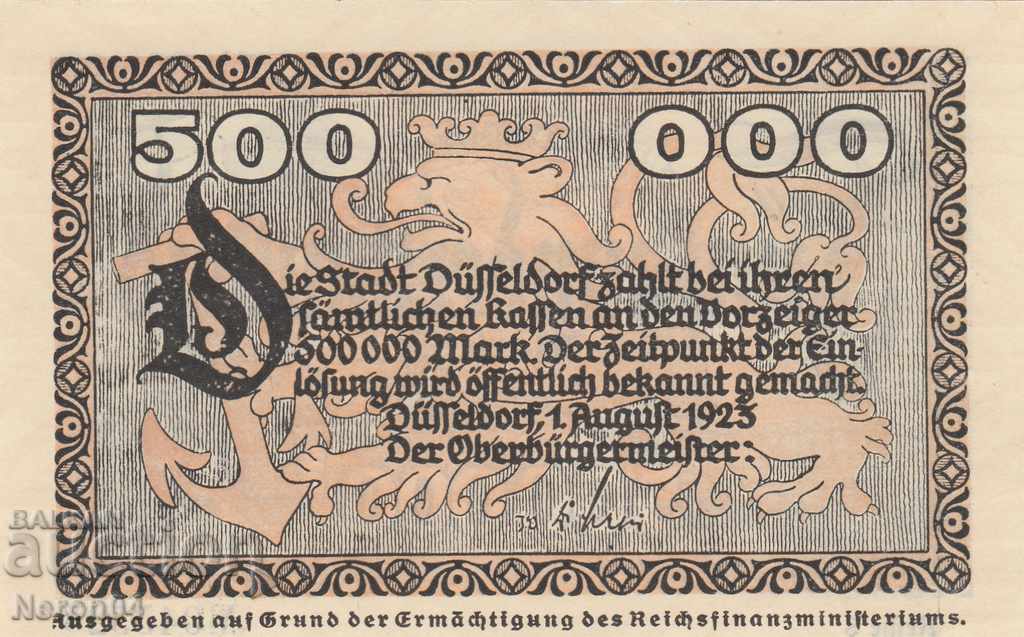 500 000
Die Stadt Düsseldorf zahlt bei ihren
sämtlichen Kassen an den Vorzeiger
500 000 Mark. Der Zeitpunkt der Ein-
lösung wird öffentlich bekannt gemacht.
Düsseldorf, 1. August 1923
Der Oberbürgermeister:
Ausgegeben auf Grund der Ermächtigung des Reichsfinanzministeriums.
BALKAN
auction
Neron64